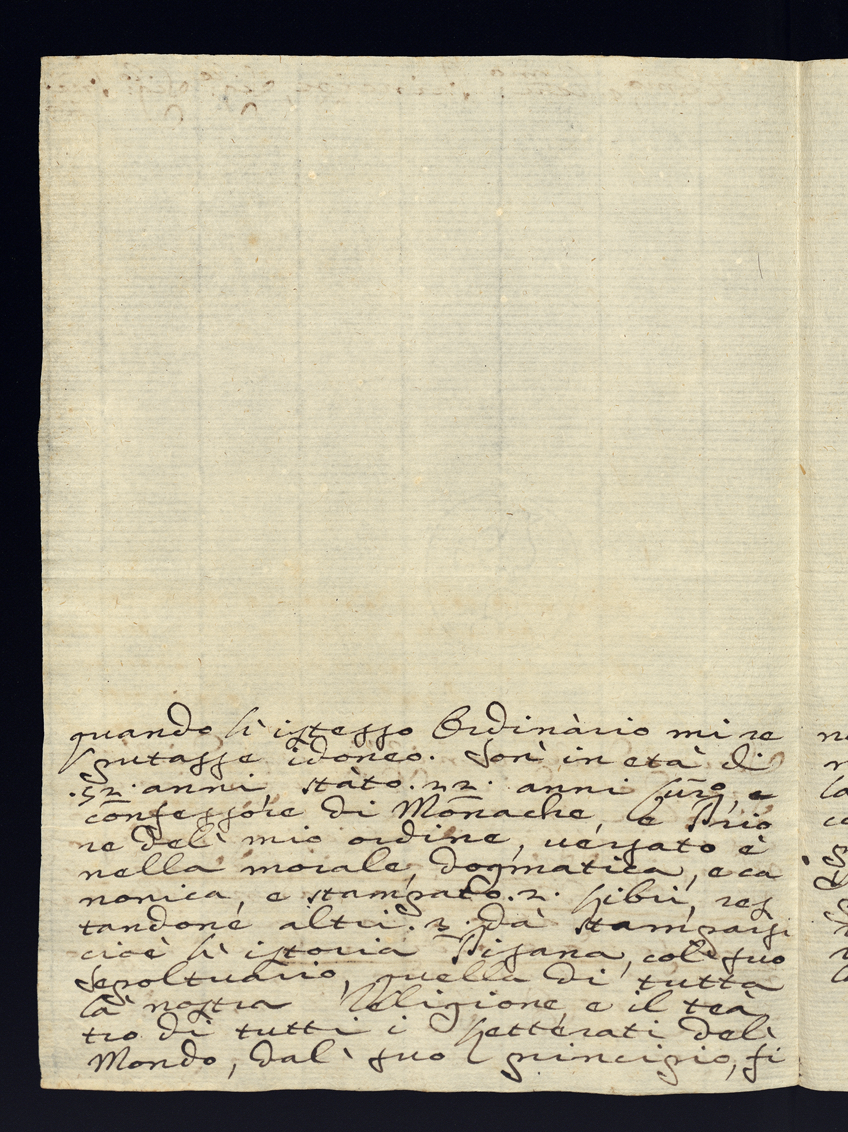 quando l'istesso Ordinàrio mi re
putasse idoneo. Sonì in età di
.52. anni, stàto .22. anni e
confessore di Monache, e Prio
re delì mio ordine, versato è
nella morale, dogmatica, e ca
nonica, e stampato .2. Libri, res
tandone altri .3. dà stamparsi
cioè l'istoria Pisana, colì suo
Sepoltuario, quella di tutta
là nostra Religione e il teà
tro di tutti i Letterati delì
Mondo, dalì suo principio, fi